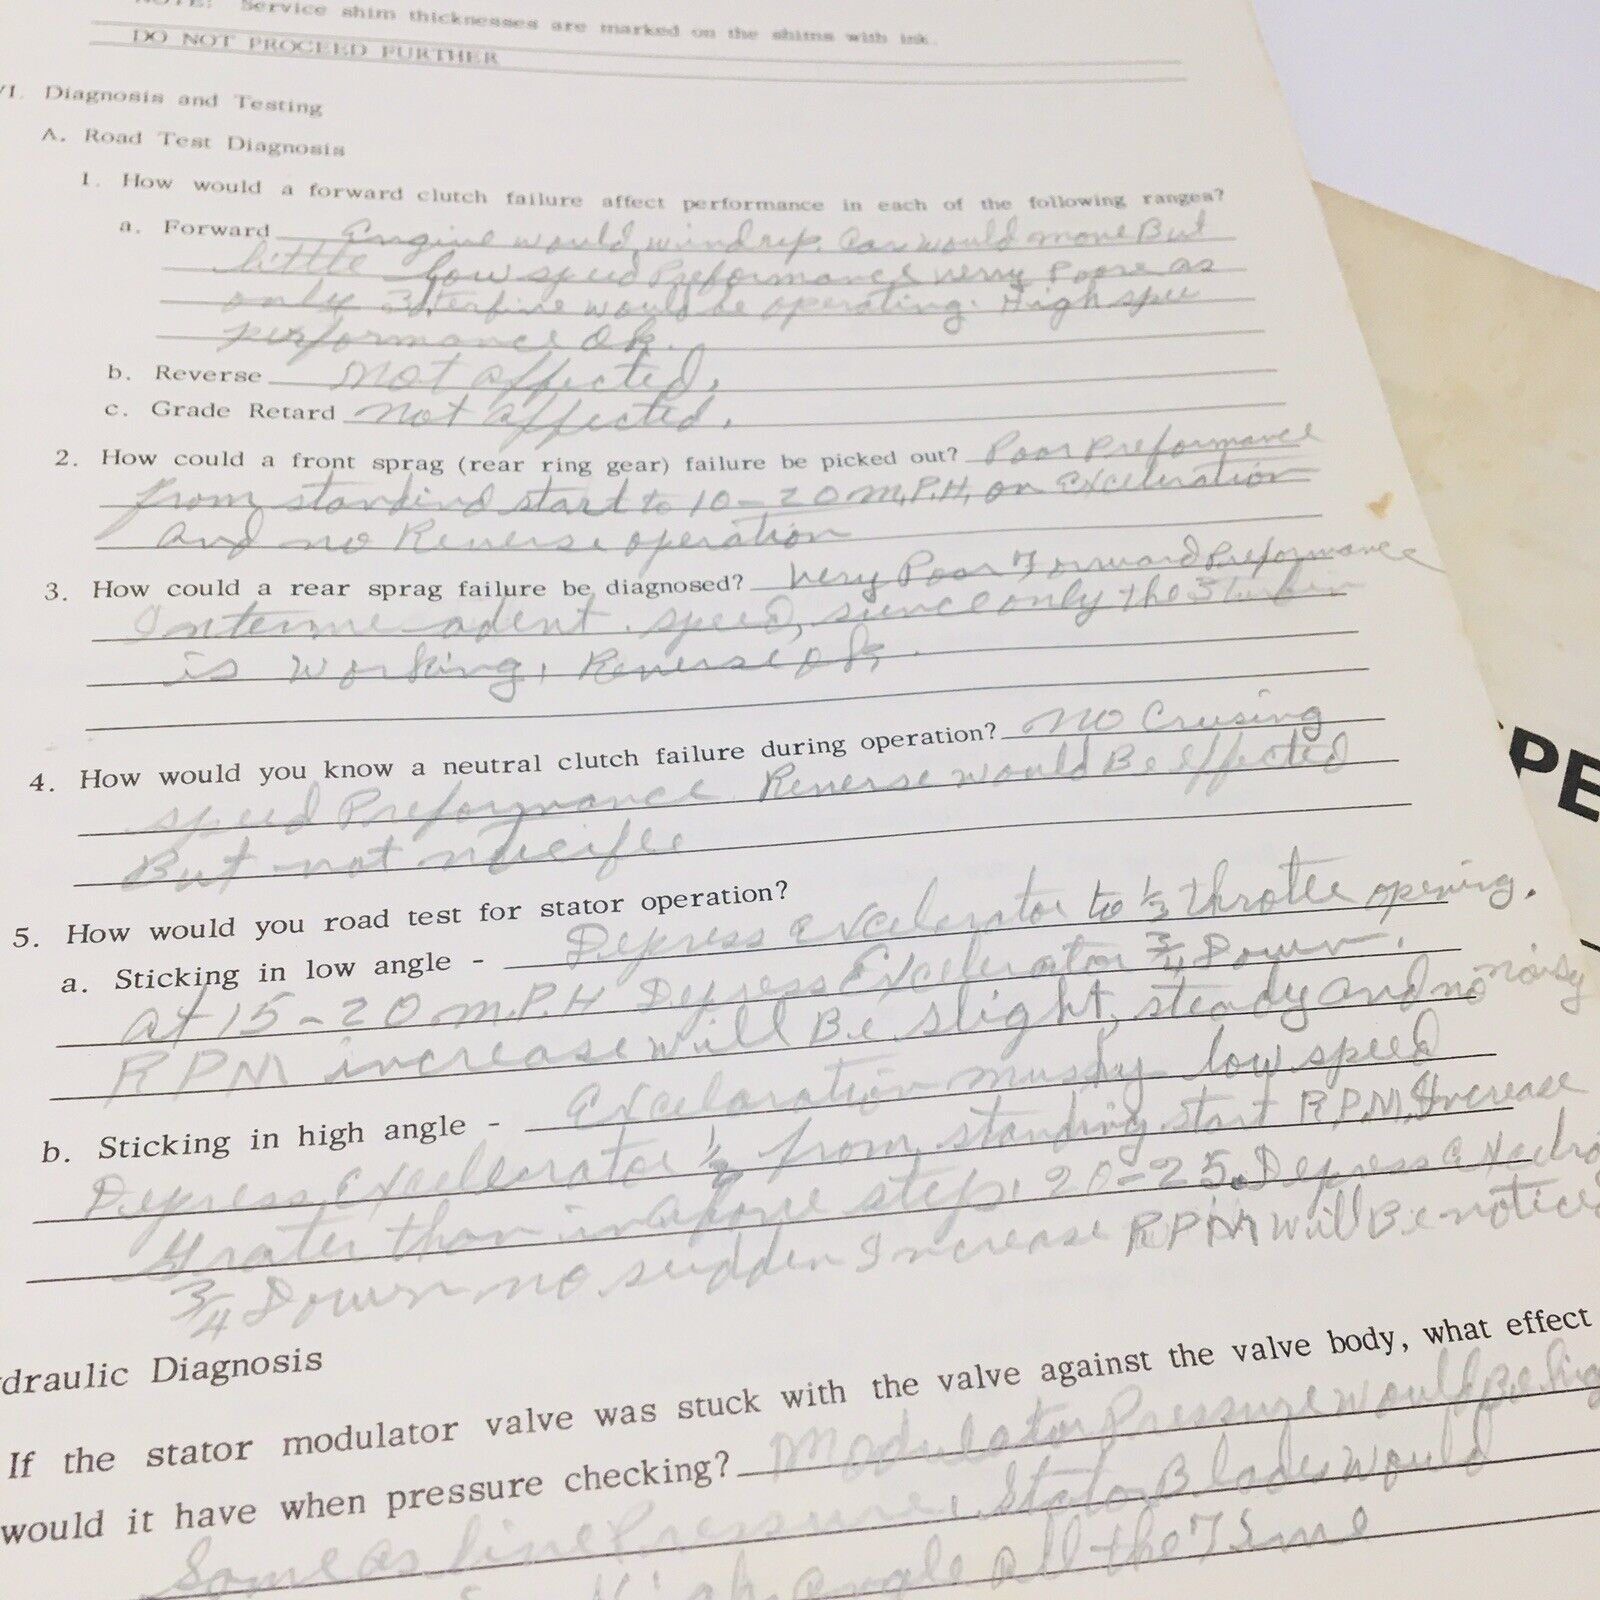 NOTE: Service shim thicknesses are marked on the shims with ink.
DO NOT PROCEED FURTHER
VI. Diagnosis and Testing
A. Road Test Diagnosis
1. How would a forward clutch failure affect performance in each of the following ranges?
a. Forward Engine would windup. Car would move But
little low speed Preformance very Poore as
only 3 terfine would be operating. High spee
performance Ok.
b. Reverse not affected.
c. Grade Retard not affected.
2. How could a front sprag (rear ring gear) failure be picked out? Poor Preformance
from standind start to 10-20 M.P.H. on Exceleration
and no Reverse operation
3. How could a rear sprag failure be diagnosed? Very Poor Forward Preformance
speed, since only the 3
is working, Reverse ok.
4. How would you know a neutral clutch failure during operation? no Crusing
speed Preformance. Reverse would Be effected
But not
5. How would you road test for stator operation?
a. Sticking in low angle - Depress excelerator to 1/3 throtle opening.
at 15-20 M.P.H Depress Excelerator 3/4 Down.
RPM increase will Be slight, steady and no noisy
b. Sticking in high angle - excelaration mushy low speed
Depress excellerator 1/2 from standing start RPM Increase
grater than in above step. 20-25. Depress
3/4 Down no sudden Increase RPM will Be notice
draulic Diagnosis
If the stator modulator valve was stuck with the valve against the valve body, what effect
would it have when pressure checking? Modulator Pressure would Be
Same as line Pressure. Stator Blades would
High angle all the Time